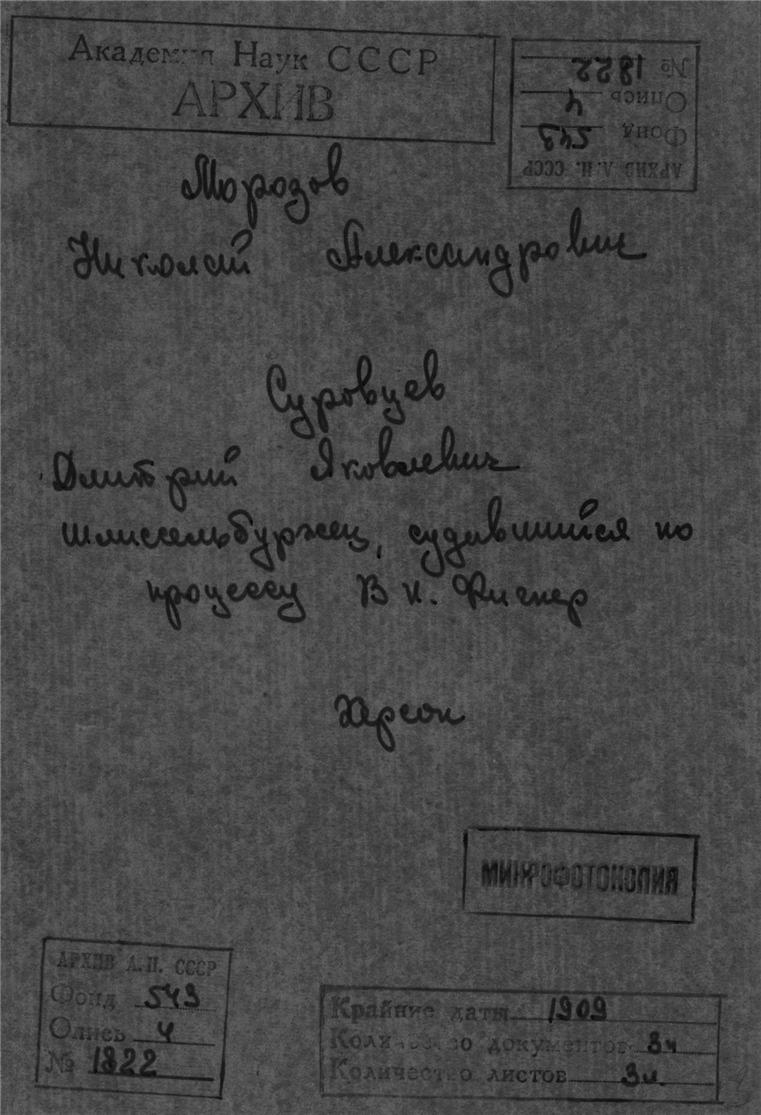 Академия Наук СССР
АРХИВ
№ 1822
Опись 4
Фонд 543
АРХИВ А.Н. СССР
Морозов
Николай Александрович
Суровцев
Дмитрий Яковлевич
шлиссельбуржец, судившийся по
процессу В Н. Фигнер
Херсон
МИКРОФОТОКОПИЯ
АРХИВ А.Н. СССР
Фонд 543
Опись 4
№ 1822
Крайние даты 1909
Количество документов 3
Количество листов 3 л.